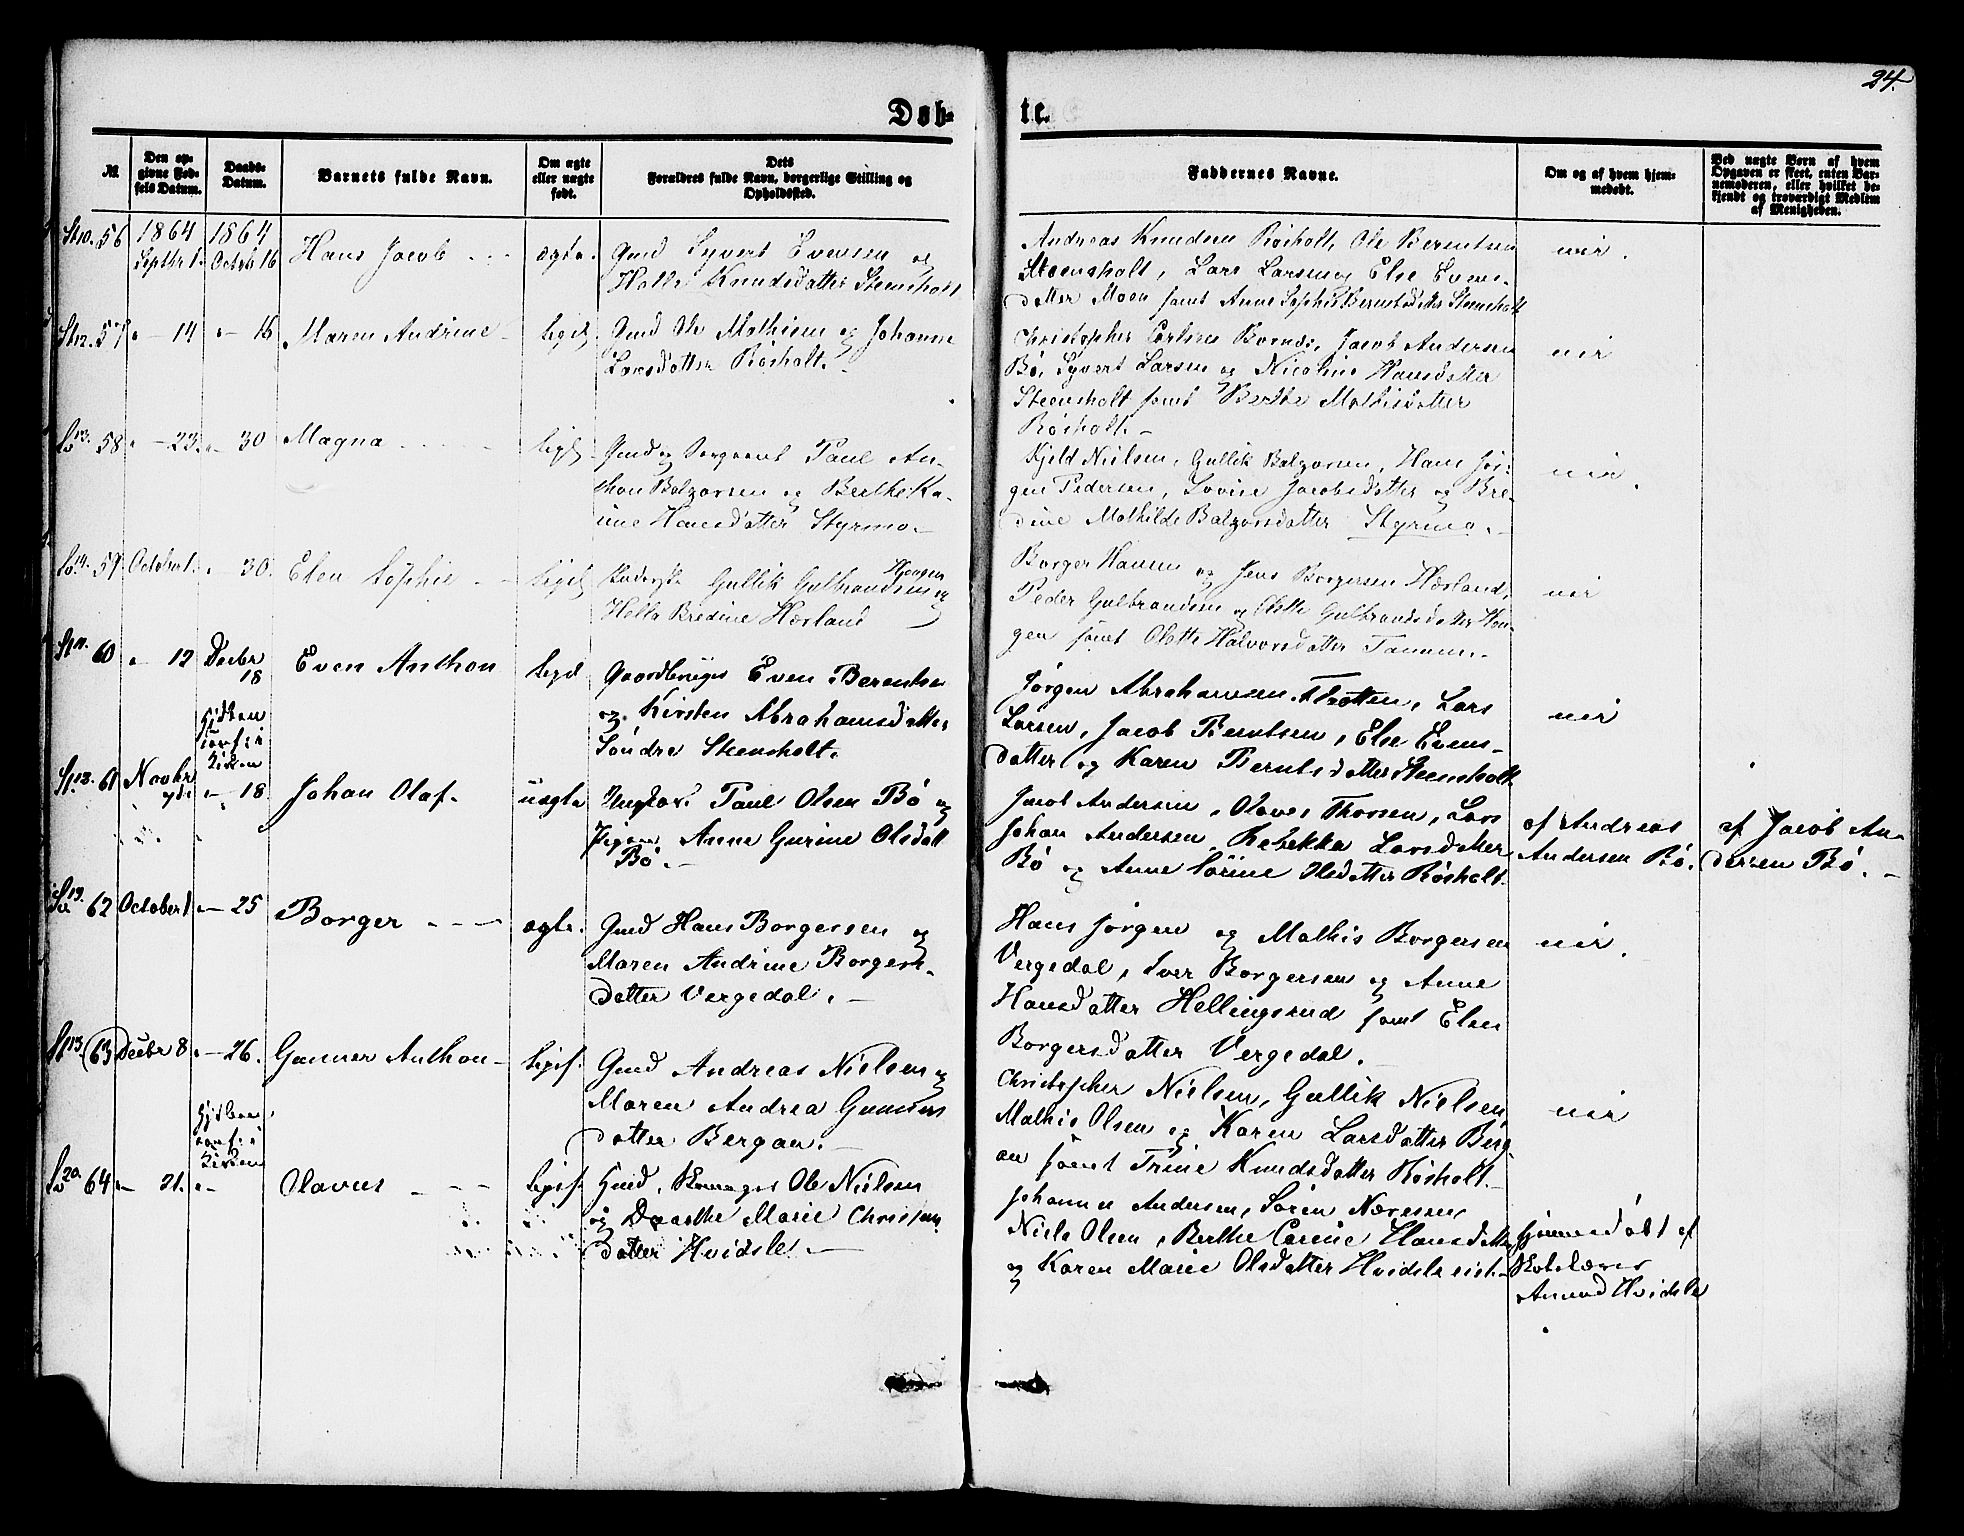 24.
Døb-
te.
№
Den op-
givne Fød-
sels Datum.
Daabs-
Datum.
Barnets fulde Navn.
Om ægte
eller uægte
født.
Dets
Forældres fulde Navn, borgerlige Stilling og
Opholdssted.
Faddernes Navne.
Om og af hvem hjem-
medøbt.
Ved uægte Børn af hvem
Opgaven er skeet, enten Bar-
nemoderen, eller hvilket be-
kjendt og troværdigt Medlem
af Menigheden.
56
1864
Septbr 1.
1864
Octob 16
Hans Jacob
ægte.
Gmd Syvert Evensen og
Helle Knudsdatter Steensholt
Andreas Knudsen Røsholt, Ole Berentsen
Steensholt, Lars Larsen og Else Evens-
datter Moen samt Anne Sophie Berntsdatter Steensholt
nei.
57
" - 14
" - 16
Maren Andrine
ligel
Gmd Ole Mathisen og Johanne
Larsdatter Røsholt.
Christopher Carlsen Jacob Andersen
Bø, Syvert Larsen og Nicoline Hansdatter
Steensholt samt Berthe Mathisdatter
Røsholt. -
nei
58
" - 23.
" - 30
Magna
ligel
Gmd og Sergeant Paul An-
thon Balzersen og Berthe Ka-
rine Hansdatter Styrmo. -
Kjeld Nielsen, Gullik Balzersen, Hans Jør-
gen Pedersen, Lovise Jacobsdatter og Bre-
dine Mathilde Balzersdatter Styrmo. -
nei.
59
Octobr 1.
" - 30.
Elen Sophie
ligel
Gullik Gulbrandsen Hougen og
Helle Bredine Hærland
Borger Hansen og Jens Borgersen Hærland,
Peder Gulbrandsen og Olette Gulbrandsdatter Hou-
gen samt Olette Halvorsdatter Tammen. -
nei
60
" 12
Decbr
18
Even Anthon
ligel
Gaardbruger Even Berentsen
og Kirsten Abrahamsdatter
Søndre Steensholt.
Jørgen Abrahamsen Flotten, Lars
Larsen, Jacob Berntsen, Else Evens-
datter og Karen Berntsdatter Steensholt
nei
61
Novbr
" - 18
i
Kirken
Johan Olaf.
uægte
Ungkar. Paul Olsen Bø og
Pigen Anne Gurine Olsdatt
Bø. -
Jacob Andersen, Olaves Thorsen, Lars
Johan Andersen, Rebekka Larsdatter
Bø og Anne Sørine Olsdatter Røsholt.
af Andreas
Andersen Bø.
af Jacob An-
dersen Bø. -
62
October 1
" - 25
Borger
ægte.
Gmd Hans Borgersen og
Maren Andrine Borgers-
datter Vergedal. -
Hans Jørgen og Mathis Borgersen
Vergedal, Iver Borgersen og Anne
Hansdatter Hellingsrud samt Elen
Borgersdatter Vergedal. -
nei.
63
Decbr 8
" - 26.
Gunner Anthon
ligel.
Gmd Andreas Nielsen og
Maren Andrea Gunners
datter Bergan. -
Christopher Nielsen, Gullik Nielsen
Mathis Olsen og Karen Larsdatter Berg-
an samt Trine Knudsdatter Røsholt. -
nei
64
" - 21.
" -
i
Kirken
Olavus
ligel.
Gmd, Ole Nielsen
og Dorthe Marie Christens
datter Hvidsle. -
Johannes Andersen, Søren Næresen,
Niels Olsen, Berthe Carine Hansdatter
og Karen Marie Olsdatter Hvidsle
Hjemmedøbt af
Skolelærer
Amund Hvidsle